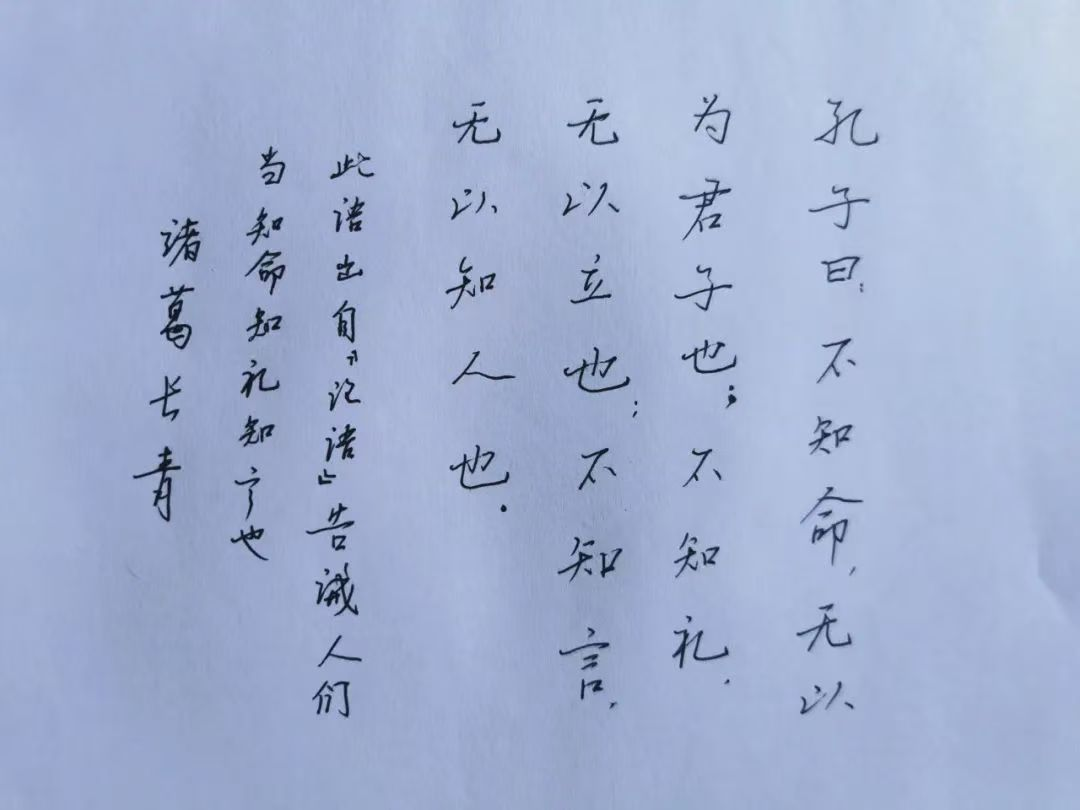 孔子曰:不知命,无以
为君子也;不知礼,
无以立也;不知言,
无以知人也.
此语出自“论语”告诫人们
当知命知礼知言也
诸葛长青